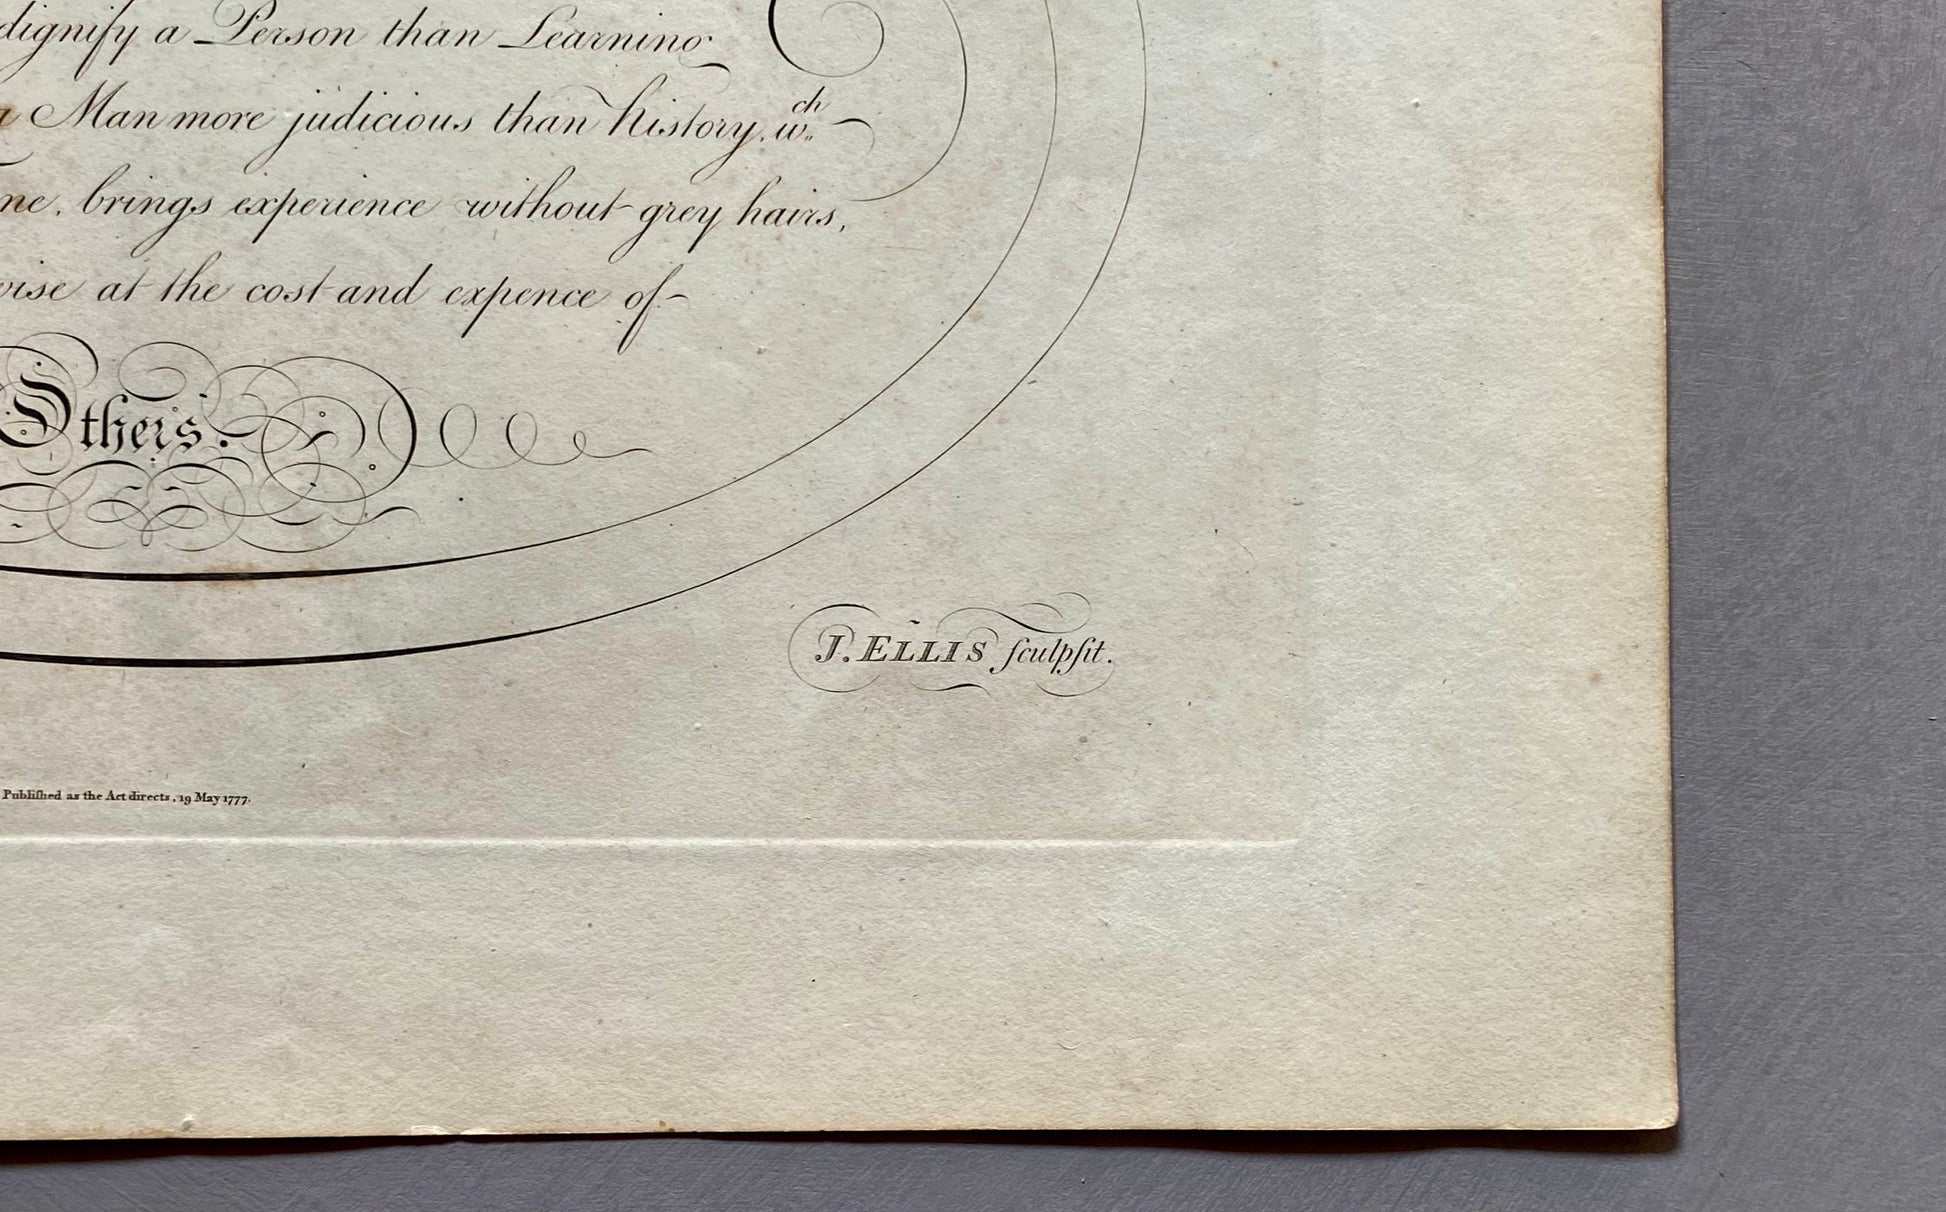 dignify a Person than Learning
Man more judicious than history, wch
brings experience without grey hairs,
at the cost and expence of
Others.
J. ELLIS ſculpſit.
Publiſhed as the Act directs, 19 May 1777.